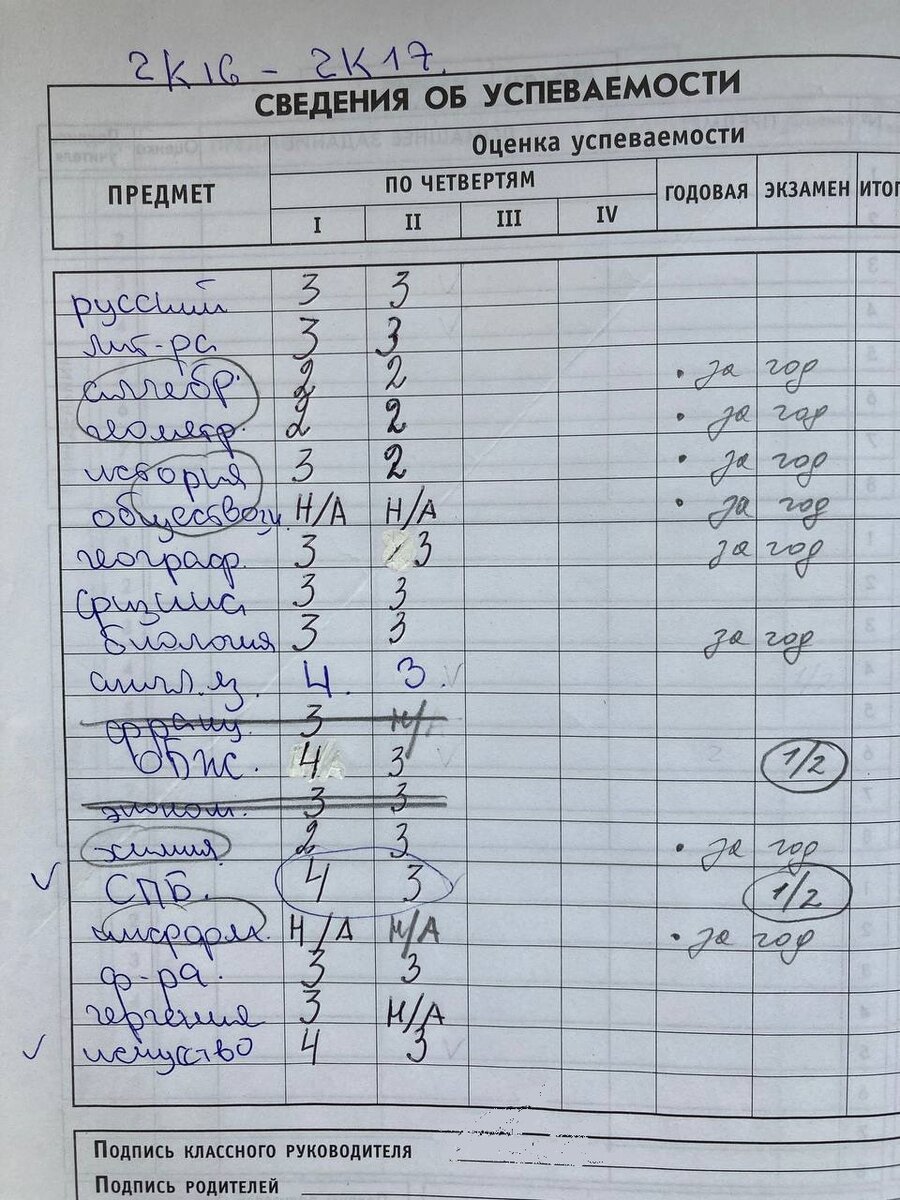 2К16 - 2К17.
СВЕДЕНИЯ ОБ УСПЕВАЕМОСТИ
ПРЕДМЕТ Оценка успеваемости
ПО ЧЕТВЕРТЯМ ГОДОВАЯ ЭКЗАМЕН ИТОГ
I II III IV
русский 3 3
лит-ра 3 3
алгебр. 2 2 • за год
геометр. 2 2 • за год
история 3 2 • за год
обществозн Н/А Н/А • за год
географ. 3 3 за год
физика 3 3
биология 3 3 за год
англ.яз. 4. 3.
франц. 3 Н/А
ОБЖ. 4 3 1/2
эконом. 3 3
химия 2 3 • за год
СПБ. 4 3 1/2
информ. Н/А Н/А • за год
ф-ра. 3 3
черчения 3 Н/А
искусство 4 3
Подпись классного руководителя
Подпись родителей